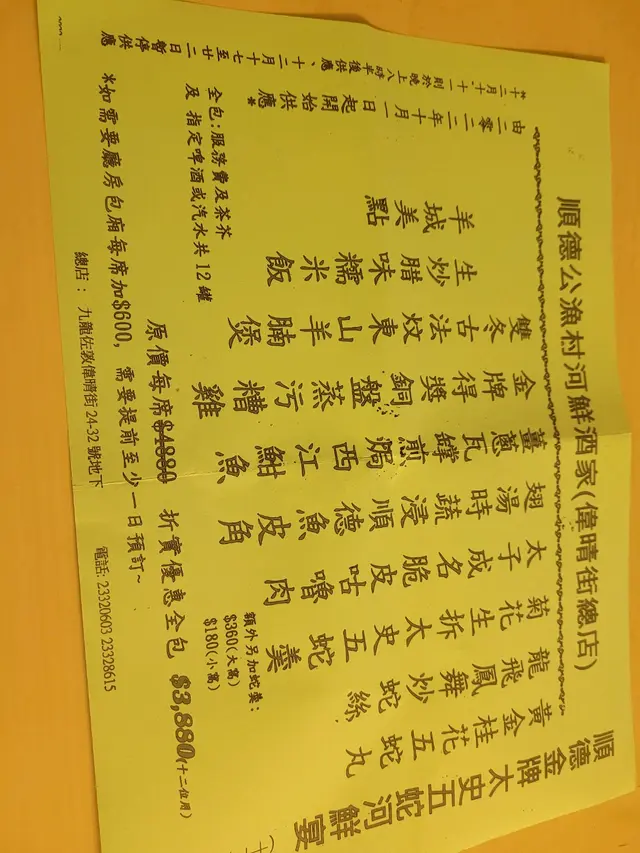 順德公漁村河鮮酒家(偉晴街總店)
順德金牌太史五蛇河鮮宴(十
黃金桂花五蛇丸
龍飛鳳舞炒蛇絲
菊花生拆太史五蛇羹
太子成名脆皮咕嚕肉
翅湯時蔬浸順德魚皮角
薑蔥瓦罉煎焗西江魽魚
金牌得獎銅盤蒸污糟雞
雙冬古法炆東山羊腩煲
生炒腊味糯米飯
羊城美點
額外另加蛇羹:
$360(大窩)
$180(小窩)
由二零二二年十月一日起開始供應*
*十二月十.十一則於晚上八時半後供應、十二月十七至廿二日暫停供應
全包:服務費及茶芥
及 指定啤酒或汽水共 12 罐
原價每席$4880 折實優惠全包 $3,880(十二位用)
*如需要廳房包廂每席加$600, 需要提前至少一日預訂~
總店: 九龍佐敦偉晴街 24-32 號地下 電話: 23320603 23328615